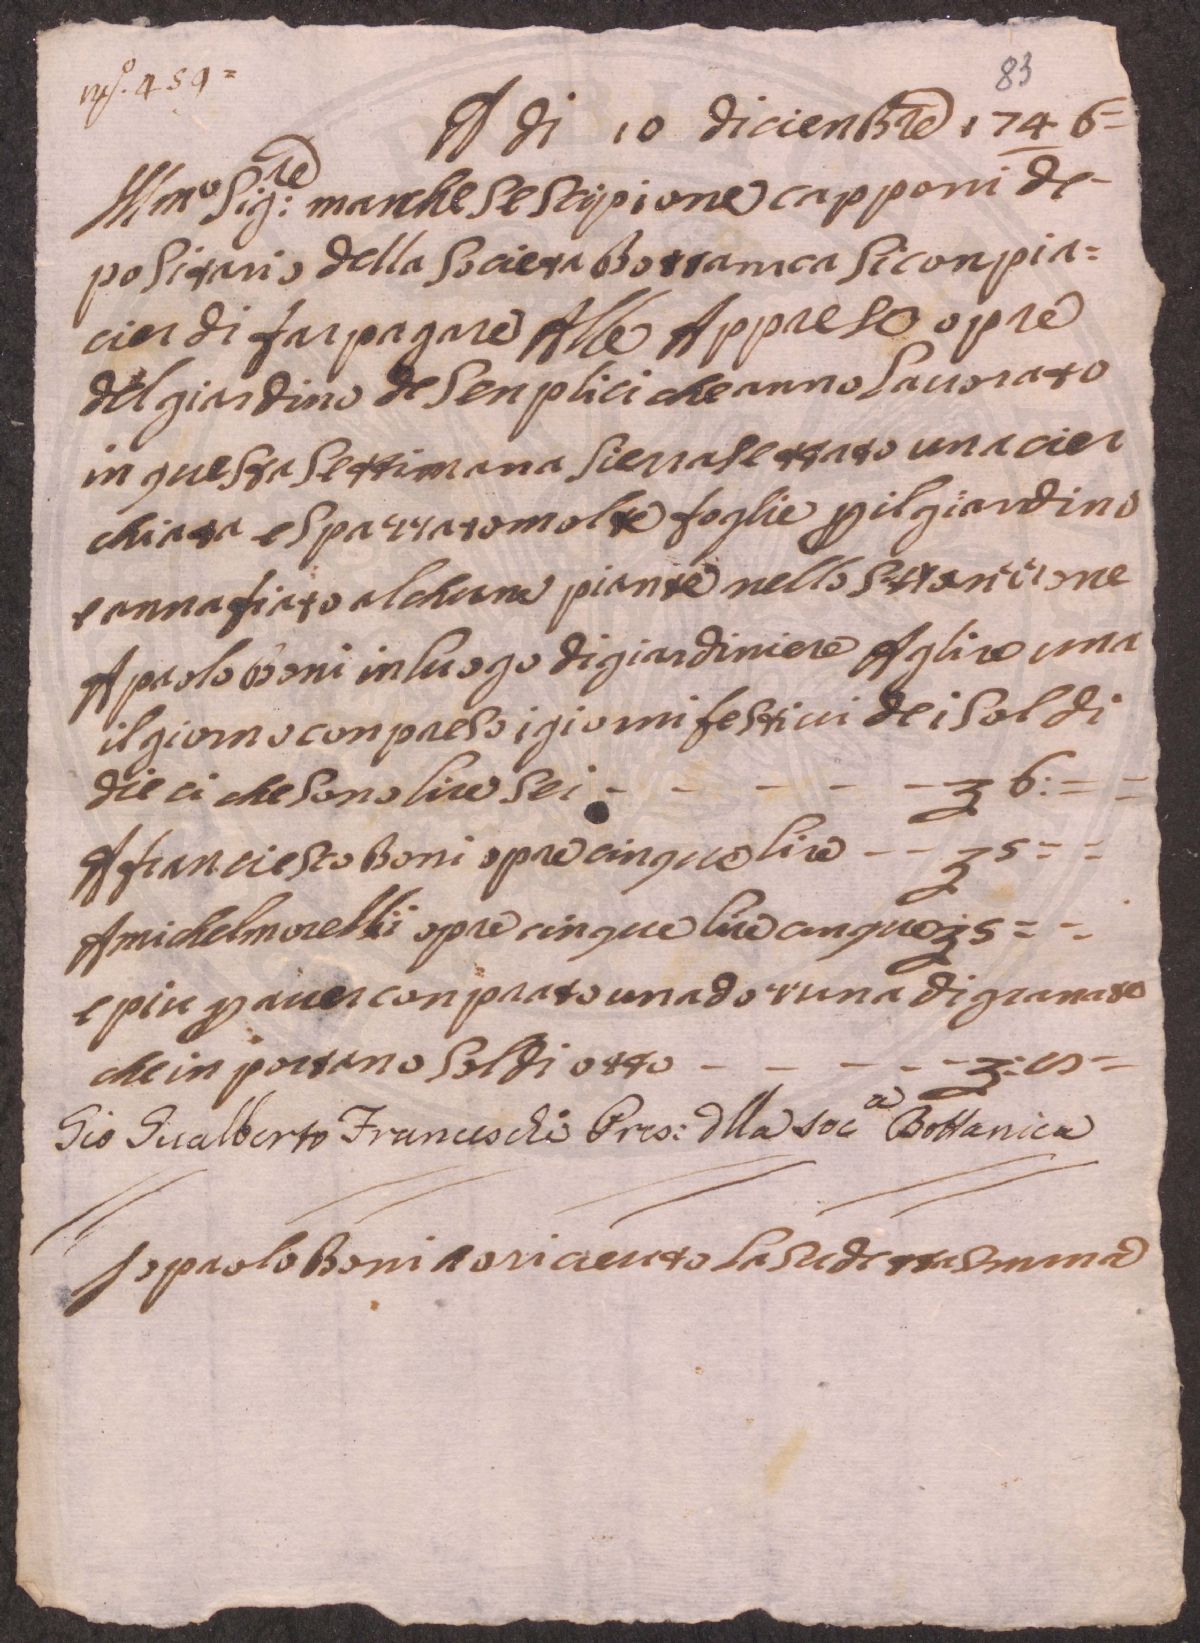 nº. 459=
83
A di 10 diciembre 1746=
Illmo Sigre: marchese scipione capponi de-
positario della Societa Bottanica si conpia=
cier di far pagare Alle Appreso opre
del giardino de senplici che anno lavorato
in questa settimana si e rasettato una cier
chiata e spazzato molte foglie p il giardino
e annafiato alchune piante nello sttanzone
A paolo Boni in luogo di giardiniere A glire una
il giorno conpreso i giorni festivi dei soldi
dieci che sono lire sei - - - - - 6:= =
A franciesco Boni opre cinque lire - - 5= =
A michel morelli opre cinque lire cinque 5= =
e piu p aver conprato una dozzina di granate
che in portano soldi otto - - - - - :8=
Gio Gualberto Franceschi Pres: dlla socª Bottanica
Io paolo Boni o riceuto la sudetta somma